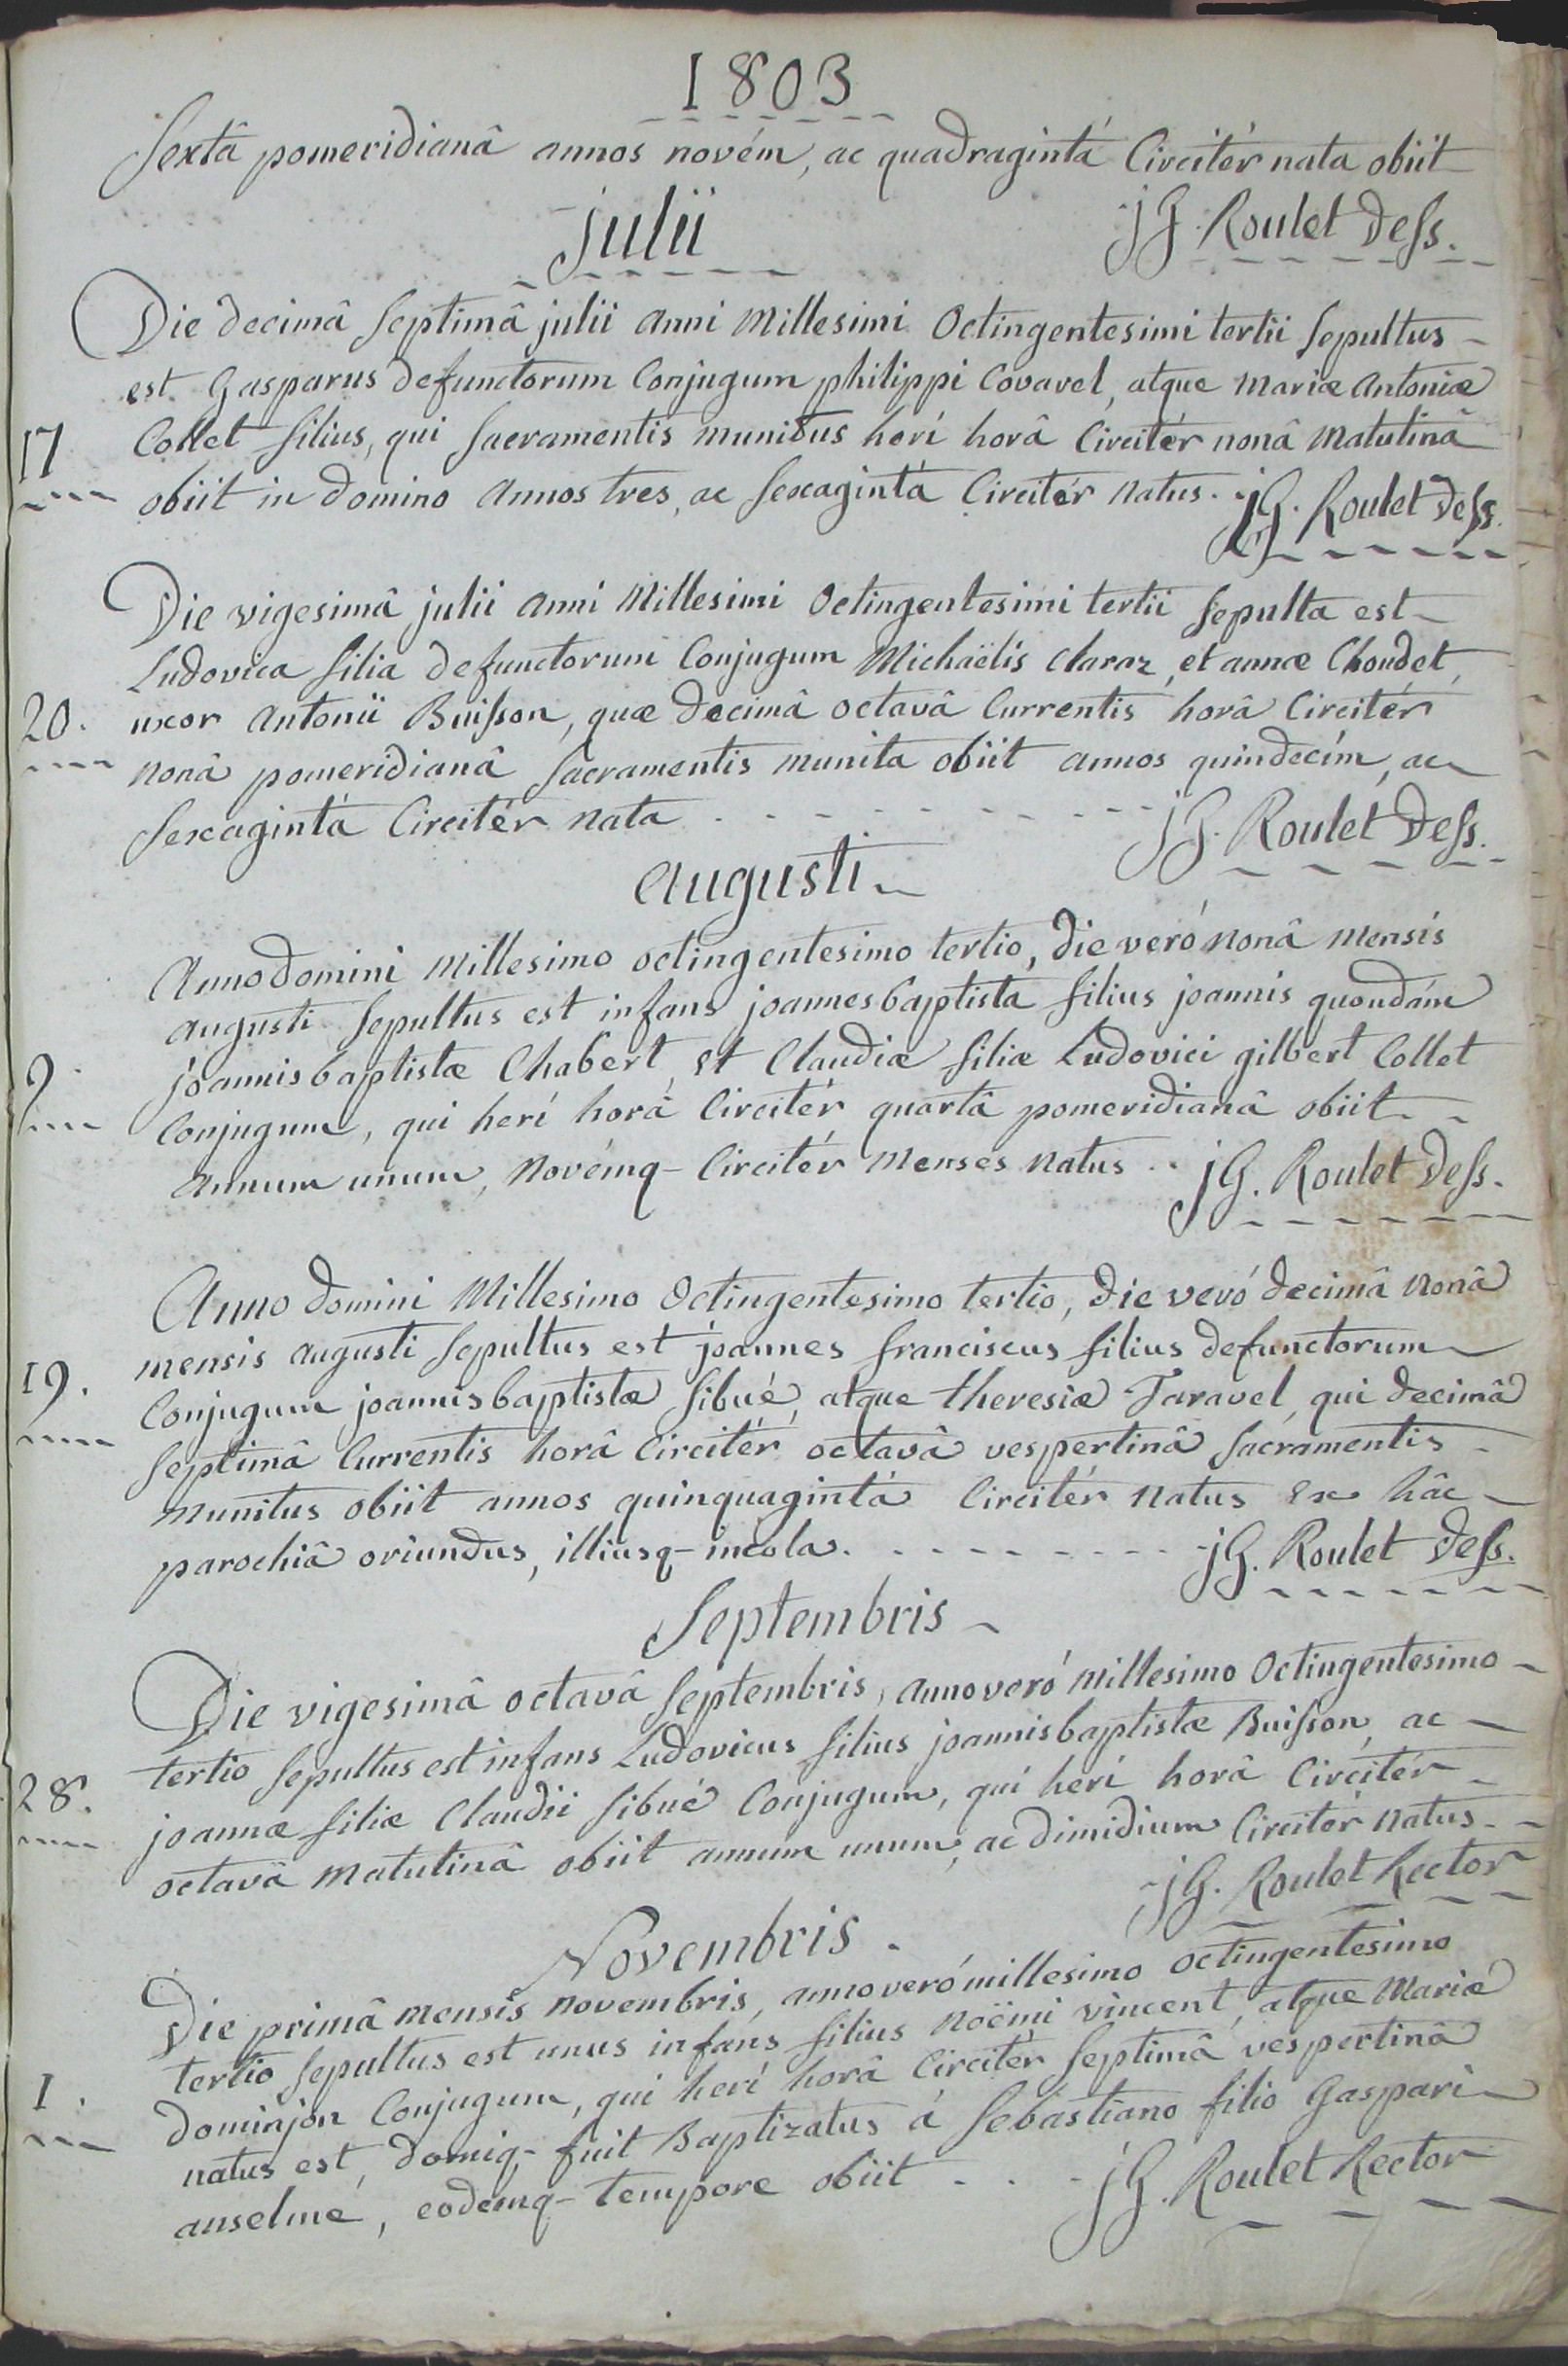 1803
Sextâ pomeridianâ annos novém, ac quadragintá Circitér nata obiit
julii
jG. Roulet Dess.
Die decimâ Septimâ julii anni Millesimi Octingentesimi tertii Sepultus
est Gasparus defunctorum Conjugum philippi Covarel, atque Mariæ Antoniæ
17 Collet filius, qui Sacramentis munitus herí horâ Circitér nonâ Matutinâ
obiit in domino annos tres, ac Sexagintá Circitér natus. jG. Roulet Dess.
Die vigesimâ julii anni Millesimi Octingentesimi tertii Sepulta est
Ludovica filia defunctorum Conjugum Michaëlis Claraz, et annæ Choudet,
20. uxor Antonii Buisson, quæ decimâ octavâ Currentis horâ Circitér
nonâ pomeridianâ Sacramentis munita obiit annos quindecím, ac
Sexagintá Circitér nata
jG. Roulet Dess.
Augusti
Anno domini Millesimo octingentesimo tertio, die veró nonâ Mensis
augusti Sepultus est infans joannesbaptista filius joannis quondám
9. joannisbaptistæ Chabert, et Claudiæ filiæ Ludovici gilbert Collet
Conjugum, qui herí horâ Circitér quartâ pomeridianâ obiit
annum unum, novémq- Circitér Menses natus .. jG. Roulet Dess.
Anno domini Millesimo Octingentesimo tertio, die veró decimâ nonâ
mensis augusti Sepultus est joannes franciscus filius defunctorum
19. Conjugum joannisbaptistæ Sibué, atque theresiæ Taravel, qui decimâ
Septimâ Currentis horâ Circitér octavâ vespertinâ Sacramentis
munitus obiit annos quinquagintá Circitér natus ex hâc
parochiâ oriundus, illiusq- incola. jG. Roulet Dess.
Septembris
Die vigesimâ octavâ Septembris, anno veró Millesimo Octingentesimo
tertio Sepultus est infans Ludovicus filius joannisbaptistæ Buisson, ac
28. joannæ filiæ Claudii Sibué Conjugum, qui herí horâ Circitér
octavâ Matutinâ obiit annum unum, ac dimidium Circitér natus.
jG. Roulet Rector
Novembris.
Die primâ Mensis Novembris, anno veró millesimo octingentesimo
tertio Sepultus est unus infans filius noëmi vincent, atque Mariæ
1. dominjon Conjugum, qui herí horâ Circitér Septimâ vespertinâ
natus est, domiq- fuit Baptizatus á Sebastiano filio Gaspari
anselme, eodemq- tempore obiit . . . jG. Roulet Rector